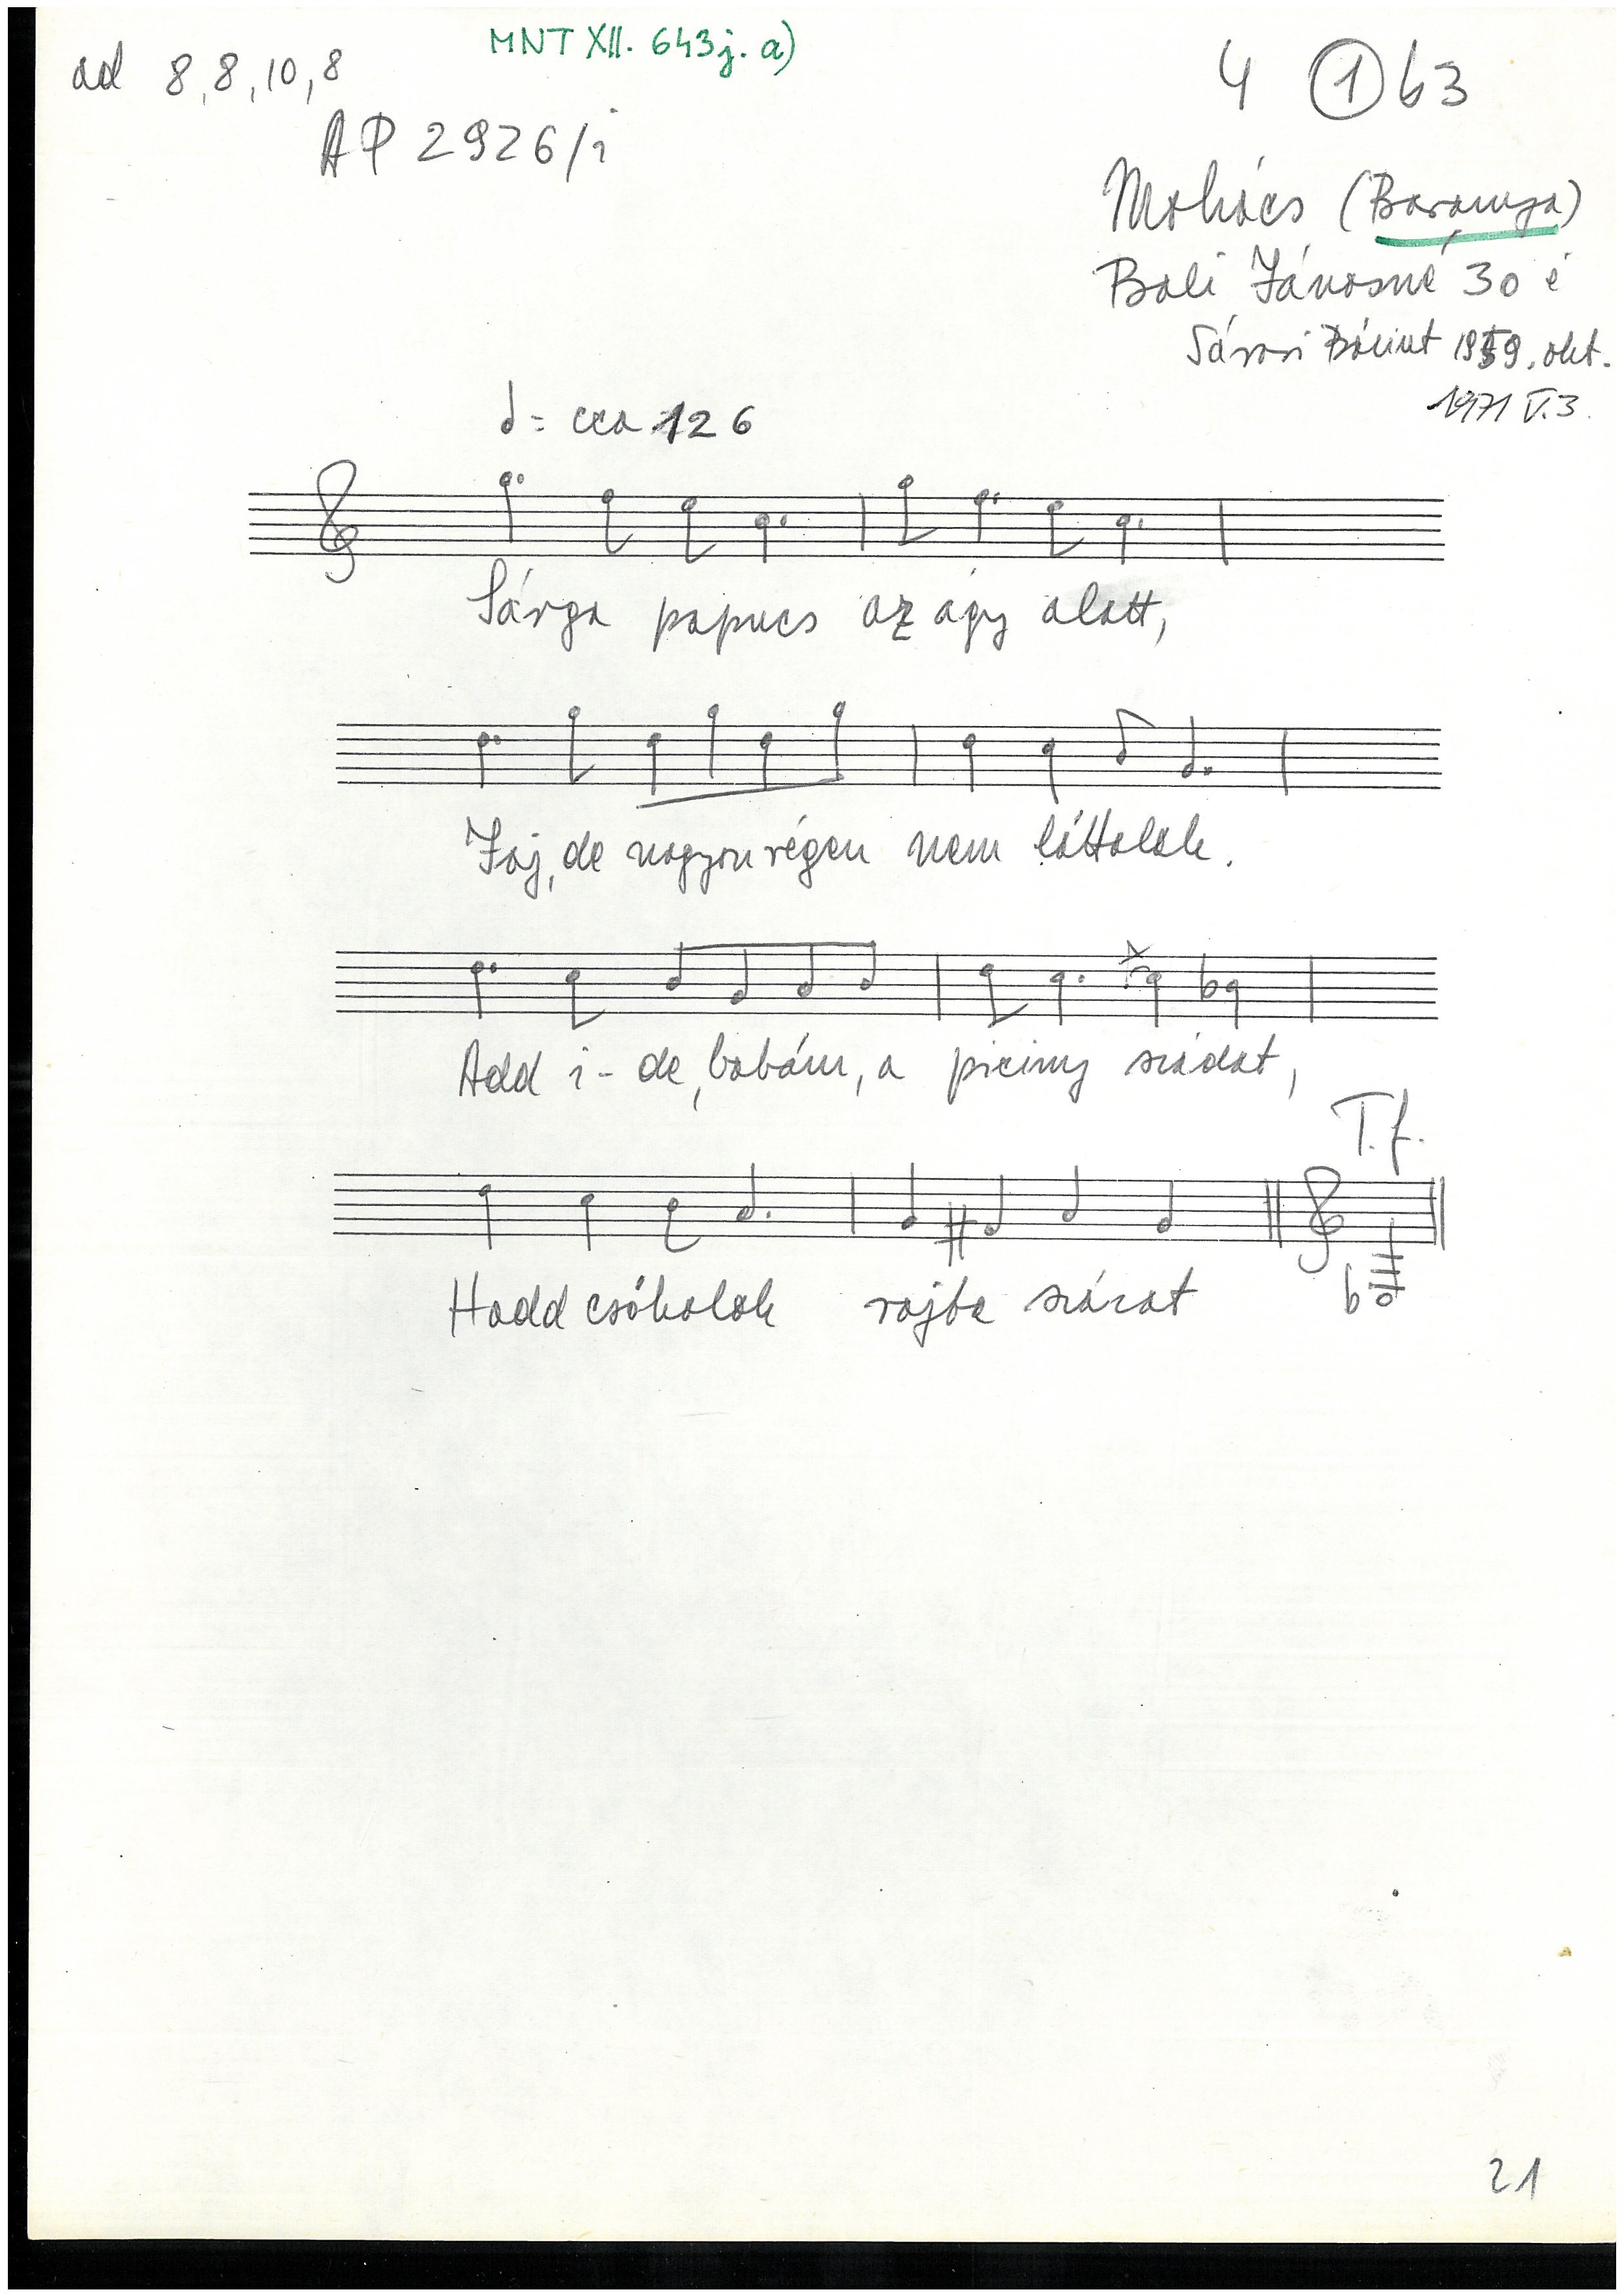 MNT XII. 643j. a)
ad 8,8,10,8
4 1 b3
AP 2926/i
Mohács (Baranya)
Boli Jánosné 30 é
Sárosi Bálint 1959. okt.
1971 V. 3.
= cca 126
Sárga papucs az ágy alatt,
Jaj, de nagyon régen nem láttalak.
Add i-de, babám, a piciny szádat,
T. f.
Hadd csókolok rajta százat
21